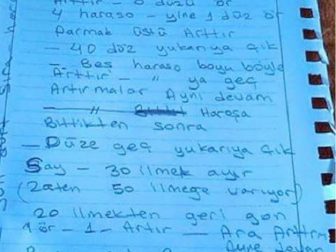 Arttır - 6 düzü ör
4 haraşo - yine 1 düz ör
Parmak üstü Arttır
- 40 düz yukarıya Çık
- Beş haraso boyu böyle
Arttır - " ya geç
Artırmalar Ayni devam
- " Haroşa
Bittikten sonra
- Düze geç yukarıya Çık
Say - 30 ilmek ayır
(Zaten 50 ilmeğe varıyor)
20 ilmekten geri dön
1 ör - 1 - Artır - Ara Arttırm